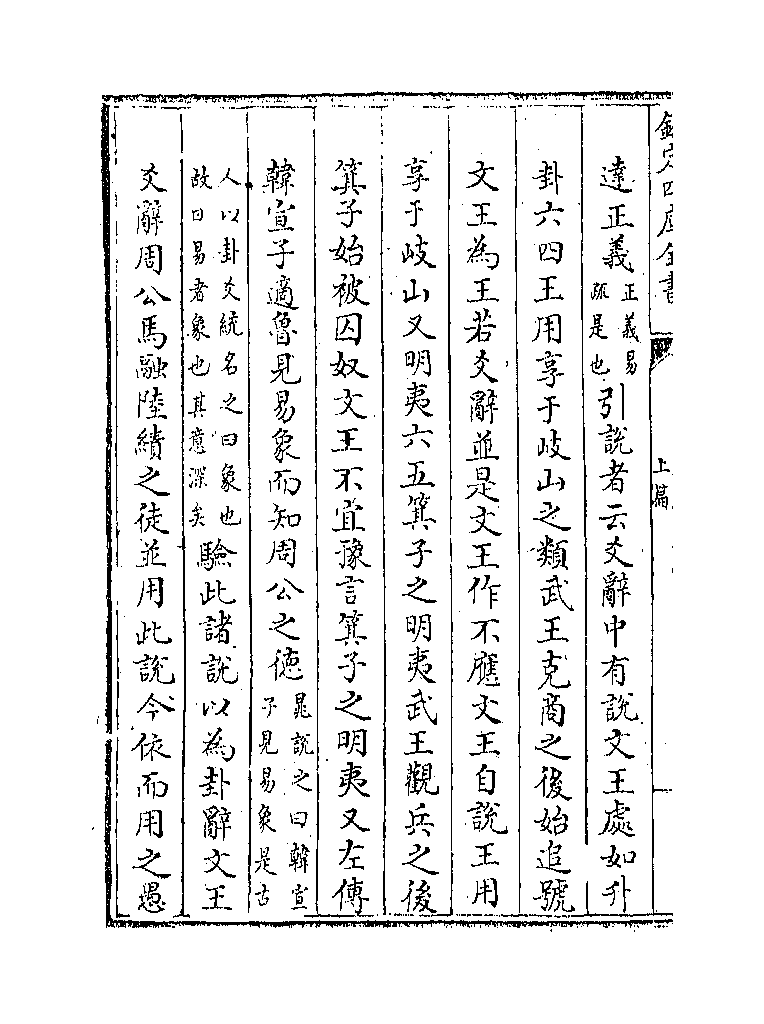 欽定四庫全書
上篇
達正義正義易疏是也引説者云爻辭中有說文王處如升
卦六四王用享于岐山之類武王克商之後始追號
文王為王若爻辭並是文王作不應文王自說王用
享于岐山又明夷六五箕子之明夷武王觀兵之後
箕子始被囚奴文王不宜豫言箕子之明夷又左傳
韓宣子適魯見易象而知周公之徳晁說之曰韓宣子見易象是古
人以卦爻統名之曰象也故曰易者象也其意深矣驗此諸説以為卦辭文王
爻辭周公馬融陸績之徒並用此説今依而用之愚